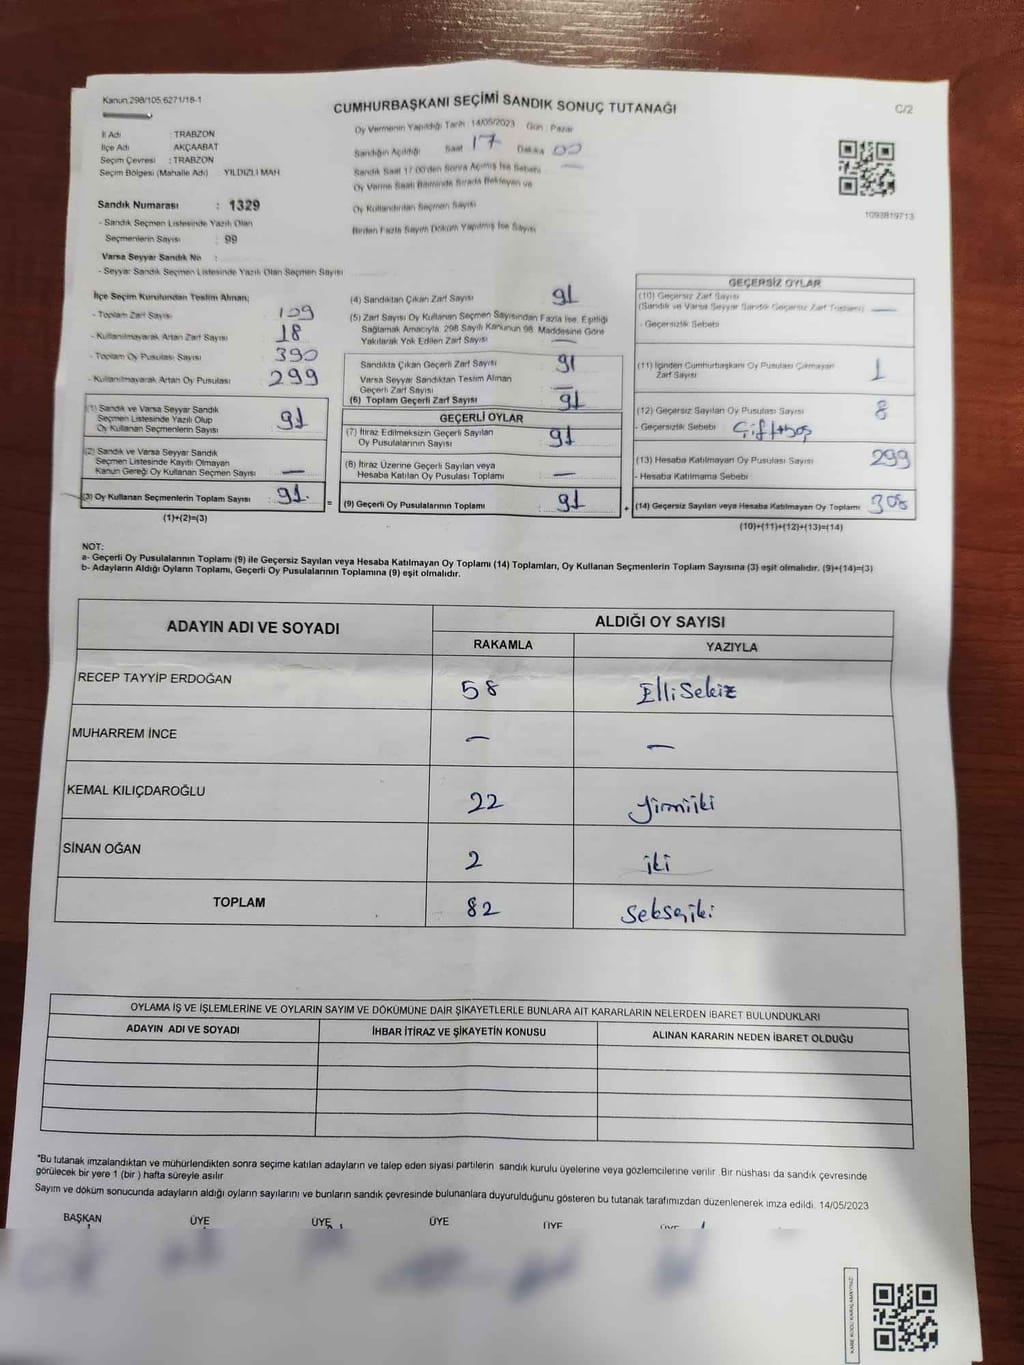 Kanun.298/105.6271/18-1
CUMHURBAŞKANI SEÇİMİ SANDIK SONUÇ TUTANAĞI
C/2
İl Adı : TRABZON
İlçe Adı : AKÇAABAT
Seçim Çevresi : TRABZON
Seçim Bölgesi (Mahalle Adı) : YILDIZLI MAH
Sandık Numarası : 1329
- Sandık Seçmen Listesinde Yazılı Olan
Seçmenlerin Sayısı : 99
Varsa Seyyar Sandık No :
- Seyyar Sandık Seçmen Listesinde Yazılı Olan Seçmen Sayısı
Oy Vermenin Yapıldığı Tarih :14/05/2023 Gün : Pazar
Sandığın Açıldığı Saat 17 Dakika 00
Sandık Saat 17:00'den Sonra Açılmış İse Sebebi —
Oy Verme Saati Bitiminde Sırada Bekleyen ve
Oy Kullandırılan Seçmen Sayısı
Birden Fazla Sayım Döküm Yapılmış İse Sayısı
1093819713
İlçe Seçim Kurulundan Teslim Alınan;
- Toplam Zarf Sayısı 109
- Kullanılmayarak Artan Zarf Sayısı 18
- Toplam Oy Pusulası Sayısı 390
- Kullanılmayarak Artan Oy Pusulası 299
(1) Sandık ve Varsa Seyyar Sandık
Seçmen Listesinde Yazılı Olup
Oy Kullanan Seçmenlerin Sayısı 91
(2) Sandık ve Varsa Seyyar Sandık
Seçmen Listesinde Kayıtlı Olmayan
Kanun Gereği Oy Kullanan Seçmen Sayısı —
(3) Oy Kullanan Seçmenlerin Toplam Sayısı 91.
(1)+(2)=(3)
(4) Sandıktan Çıkan Zarf Sayısı 91
(5) Zarf Sayısı Oy Kullanan Seçmen Sayısından Fazla İse, Eşitliği
Sağlamak Amacıyla 298 Sayılı Kanunun 98. Maddesine Göre
Yakılarak Yok Edilen Zarf Sayısı —
Sandıkta Çıkan Geçerli Zarf Sayısı 91
Varsa Seyyar Sandıktan Teslim Alınan
Geçerli Zarf Sayısı —
(6) Toplam Geçerli Zarf Sayısı 91
GEÇERLİ OYLAR
(7) İtiraz Edilmeksizin Geçerli Sayılan
Oy Pusulalarının Sayısı 91
(8) İtiraz Üzerine Geçerli Sayılan veya
Hesaba Katılan Oy Pusulası Toplamı —
(9) Geçerli Oy Pusulalarının Toplamı 91
GEÇERSİZ OYLAR
(10) Geçersiz Zarf Sayısı
(Sandık ve Varsa Seyyar Sandık Geçersiz Zarf Toplamı) —
- Geçersizlik Sebebi
(11) İçinden Cumhurbaşkanı Oy Pusulası Çıkmayan
Zarf Sayısı 1
(12) Geçersiz Sayılan Oy Pusulası Sayısı 8
- Geçersizlik Sebebi Çift+boş
(13) Hesaba Katılmayan Oy Pusulası Sayısı 299
- Hesaba Katılmama Sebebi
(14) Geçersiz Sayılan veya Hesaba Katılmayan Oy Toplamı 308
(10)+(11)+(12)+(13)=(14)
NOT:
a- Geçerli Oy Pusulalarının Toplamı (9) ile Geçersiz Sayılan veya Hesaba Katılmayan Oy Toplamı (14) Toplamları, Oy Kullanan Seçmenlerin Toplam Sayısına (3) eşit olmalıdır. (9)+(14)=(3)
b- Adayların Aldığı Oyların Toplamı, Geçerli Oy Pusulalarının Toplamına (9) eşit olmalıdır.
ADAYIN ADI VE SOYADI
ALDIĞI OY SAYISI
RAKAMLA YAZIYLA
RECEP TAYYİP ERDOĞAN 58 Elli Sekiz
MUHARREM İNCE — —
KEMAL KILIÇDAROĞLU 22 Yirmiiki
SİNAN OĞAN 2 iki
TOPLAM 82 Sekseniki
OYLAMA İŞ VE İŞLEMLERİNE VE OYLARIN SAYIM VE DÖKÜMÜNE DAİR ŞİKAYETLERLE BUNLARA AİT KARARLARIN NELERDEN İBARET BULUNDUKLARI
ADAYIN ADI VE SOYADI İHBAR İTİRAZ VE ŞİKAYETİN KONUSU ALINAN KARARIN NEDEN İBARET OLDUĞU
*Bu tutanak imzalandıktan ve mühürlendikten sonra seçime katılan adayların ve talep eden siyasi partilerin sandık kurulu üyelerine veya gözlemcilerine verilir. Bir nüshası da sandık çevresinde
görülecek bir yere 1 (bir ) hafta süreyle asılır
Sayım ve döküm sonucunda adayların aldığı oyların sayılarını ve bunların sandık çevresinde bulunanlara duyurulduğunu gösteren bu tutanak tarafımızdan düzenlenerek imza edildi. 14/05/2023
BAŞKAN ÜYE ÜYE ÜYE ÜYE ÜYE
KARE KODU KARALAMAYINIZ!